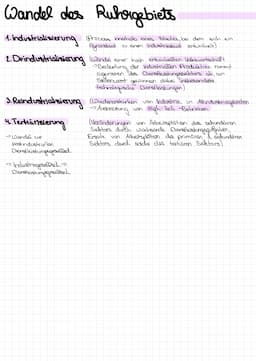 Wandel des Ruhrgebiets
1. Industrialisierung (Prozess innerhalb eines Staates, bei dem sich ein
Agrarstaat zu einem Industriestaat entwickelt)
2. Deindustrialisierung (Wandel einer hoch entwickelten Volkswirtschaft
→ Bedeutung der industriellen Produktion nimmt
gegenüber des Dienstleistungssektors ab, am
Stellenwert gewinnen dabei insbesondere
technologische Dienstleistungen)
3. Reindustrialisierung (Wiederaufleben von Industrie in Altindustriegebieten
→ Ansiedlung von High-Tech-Betrieben
4. Tertiärisierung (Veränderungen von Arbeitsplätzen des sekundären
Sektors durch wachsende Dienstleistungsgesellschaften,
Ersatz von Arbeitsplätzen des primären & sekundären
Sektors durch solche des tertiären Sektors)
→ Wandel zur
postindustriellen
Dienstleistungsgesellschaft
→ Industriegesellschaft →
Dienstleistungsgesellschaft